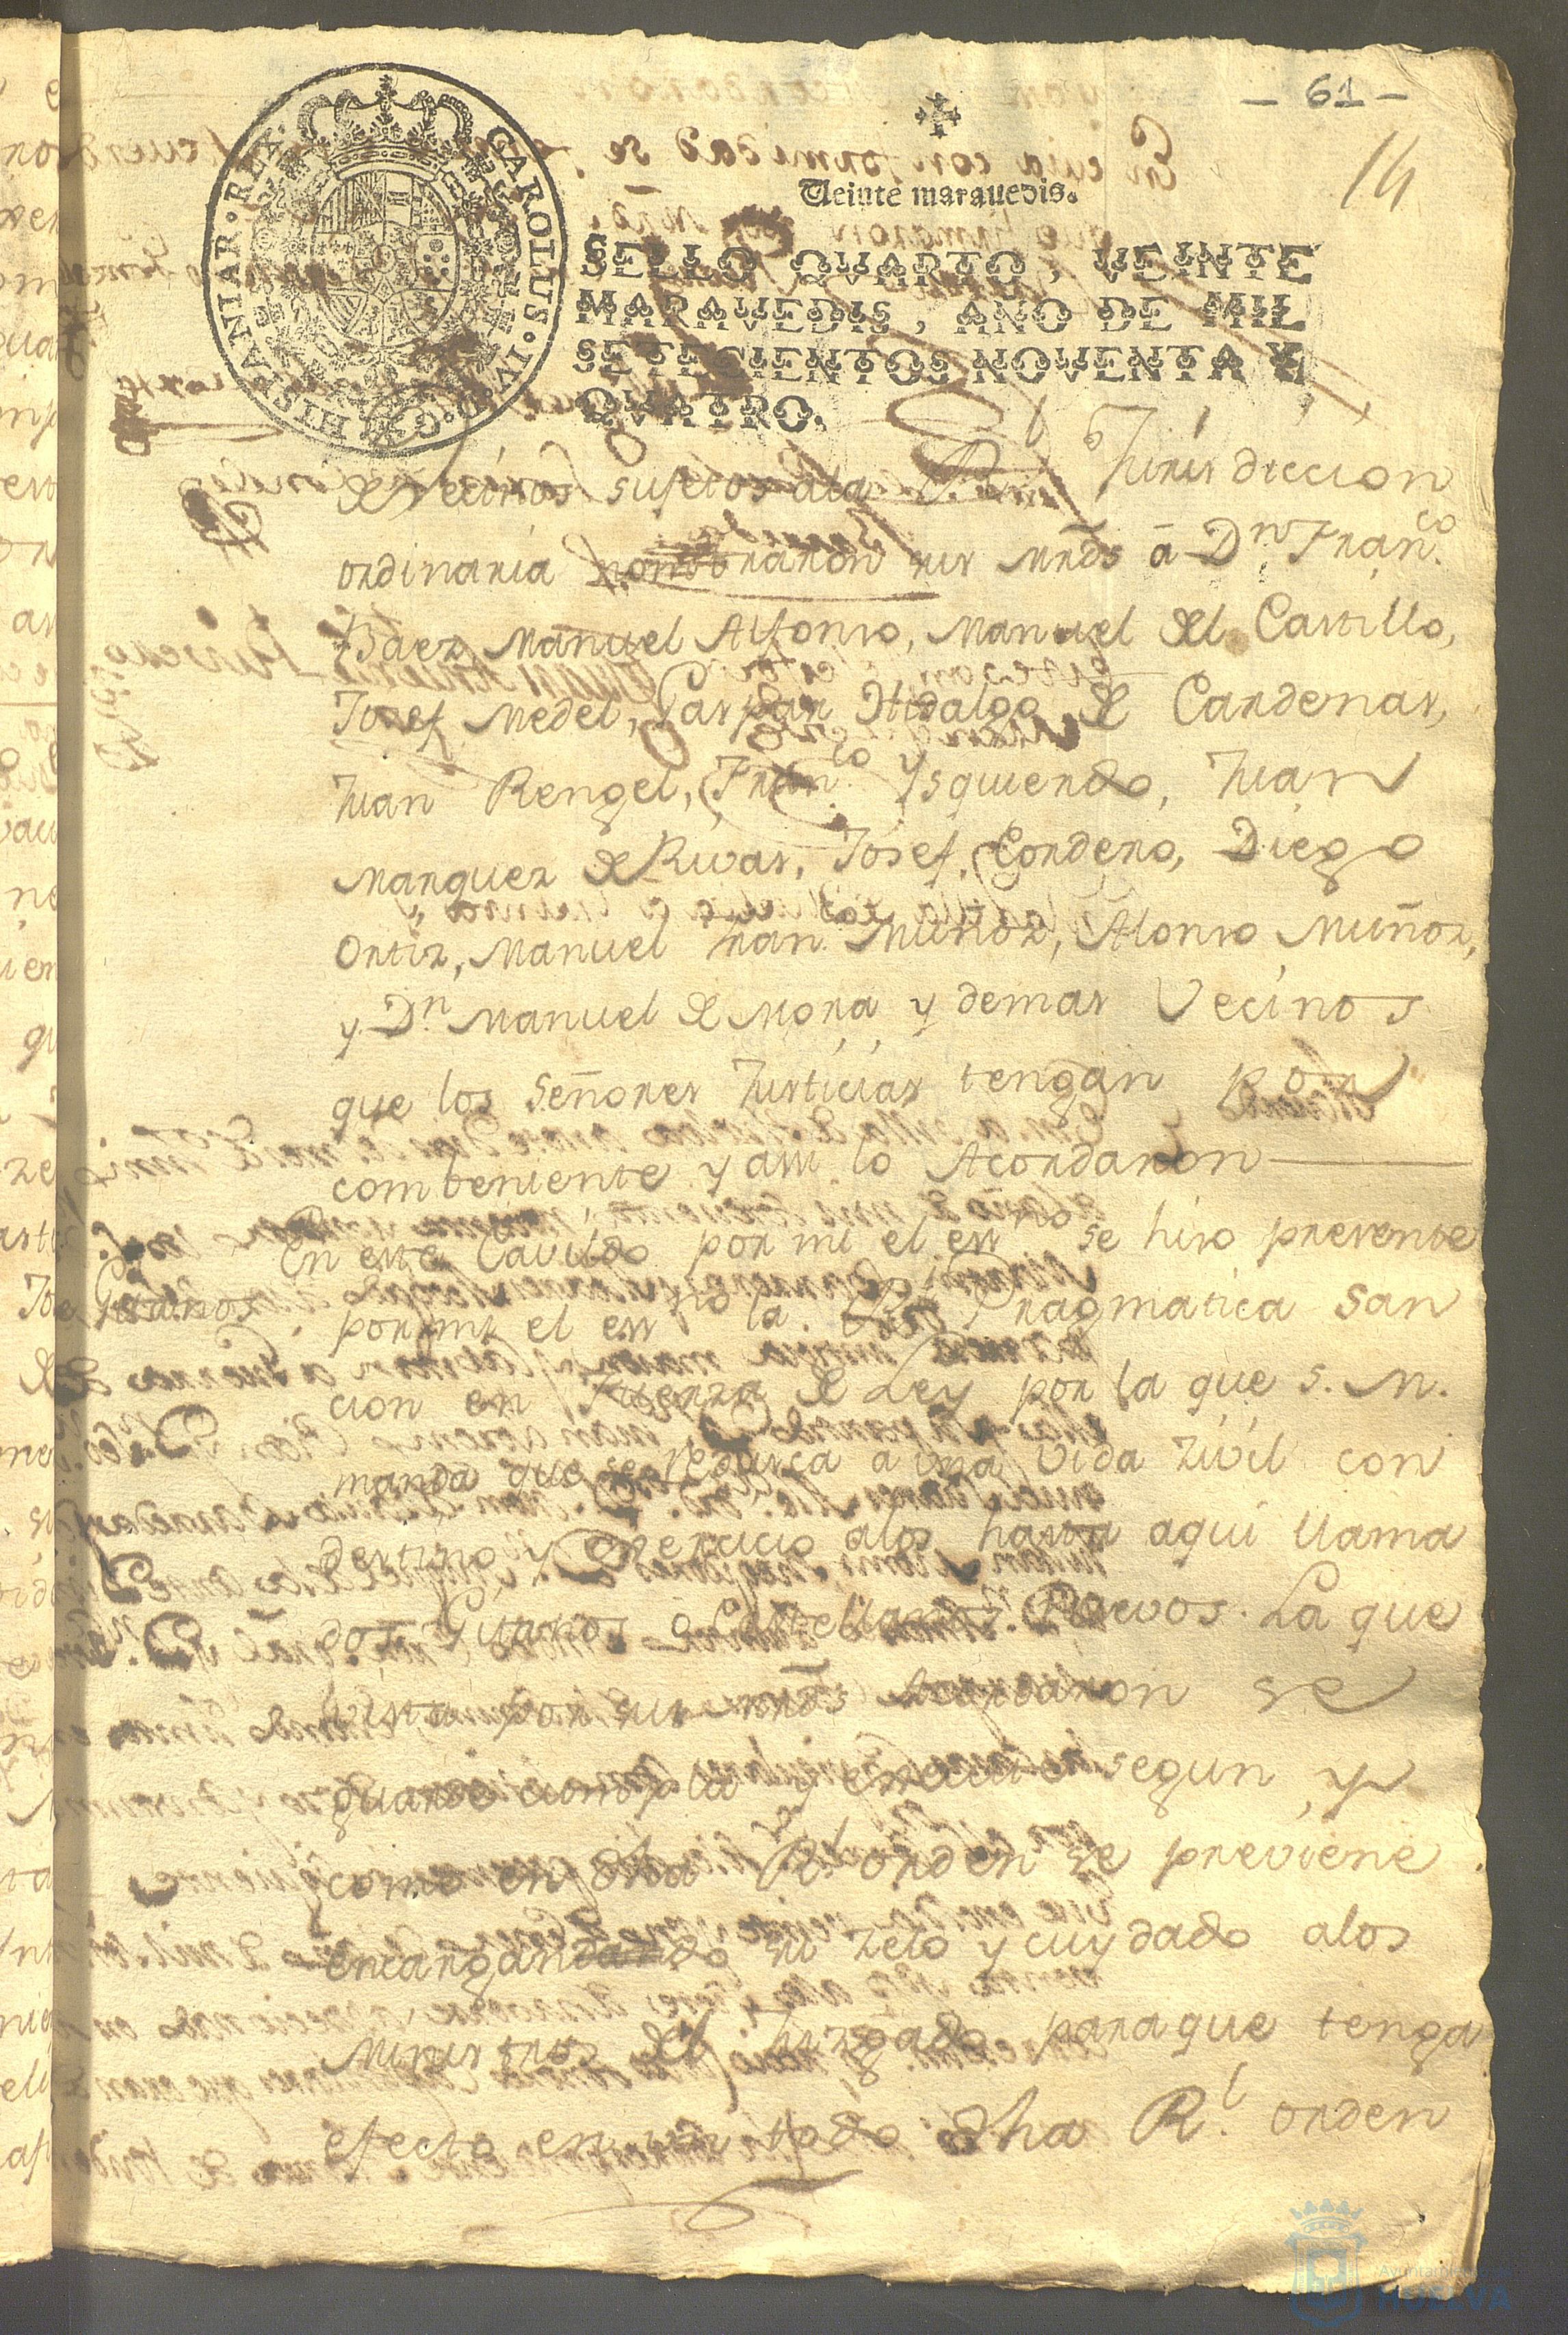 - 61 -
14
Veinte maravedis.
CAROLUS · IV · D · G · HISPANIAR · REX ·
SELLO QVARTO, VEINTE
MARAVEDIS, AÑO DE MIL
SETECIENTOS NOVENTA Y
QVATRO.
de Vecinos sujetos ala Rl Jurisdiccion
ordinaria nombraron sus mrds á Dn Franco
Baez, Manuel Alfonso, Manuel del Castillo,
Josef Medel, Gaspar Hidalgo de Cardenas,
Juan Rengel, Franco Ysquierdo, Juan
Marquez de Rivas, Josef Cordero, Diego
Ortiz, Manuel Muñoz, Alonso Muñoz,
y Dn Manuel de Mora y demas Vecinos
que los Señores Justicias tengan por
combeniente y assi lo Acordaron
En este Cavildo por mi el essno se hiso presente
Gitanos
por mi el essno la Rl Pragmatica San
cion en fuerza de Ley por la que S. M.
manda que se a una vida zivil con
destino y exercicio alos hasta aqui llama
dos Gitanos o Castellanos Nuevos. La que
vista por sus mrds Acordaron se
guarde cumpla y execute segun, y
como en dha Rl orden se previene
encargandando su zelo y cuydado alos
Ministros del Juzgado para que tenga
efecto en un todo dha Rl orden
Ayuntamiento
HUELVA